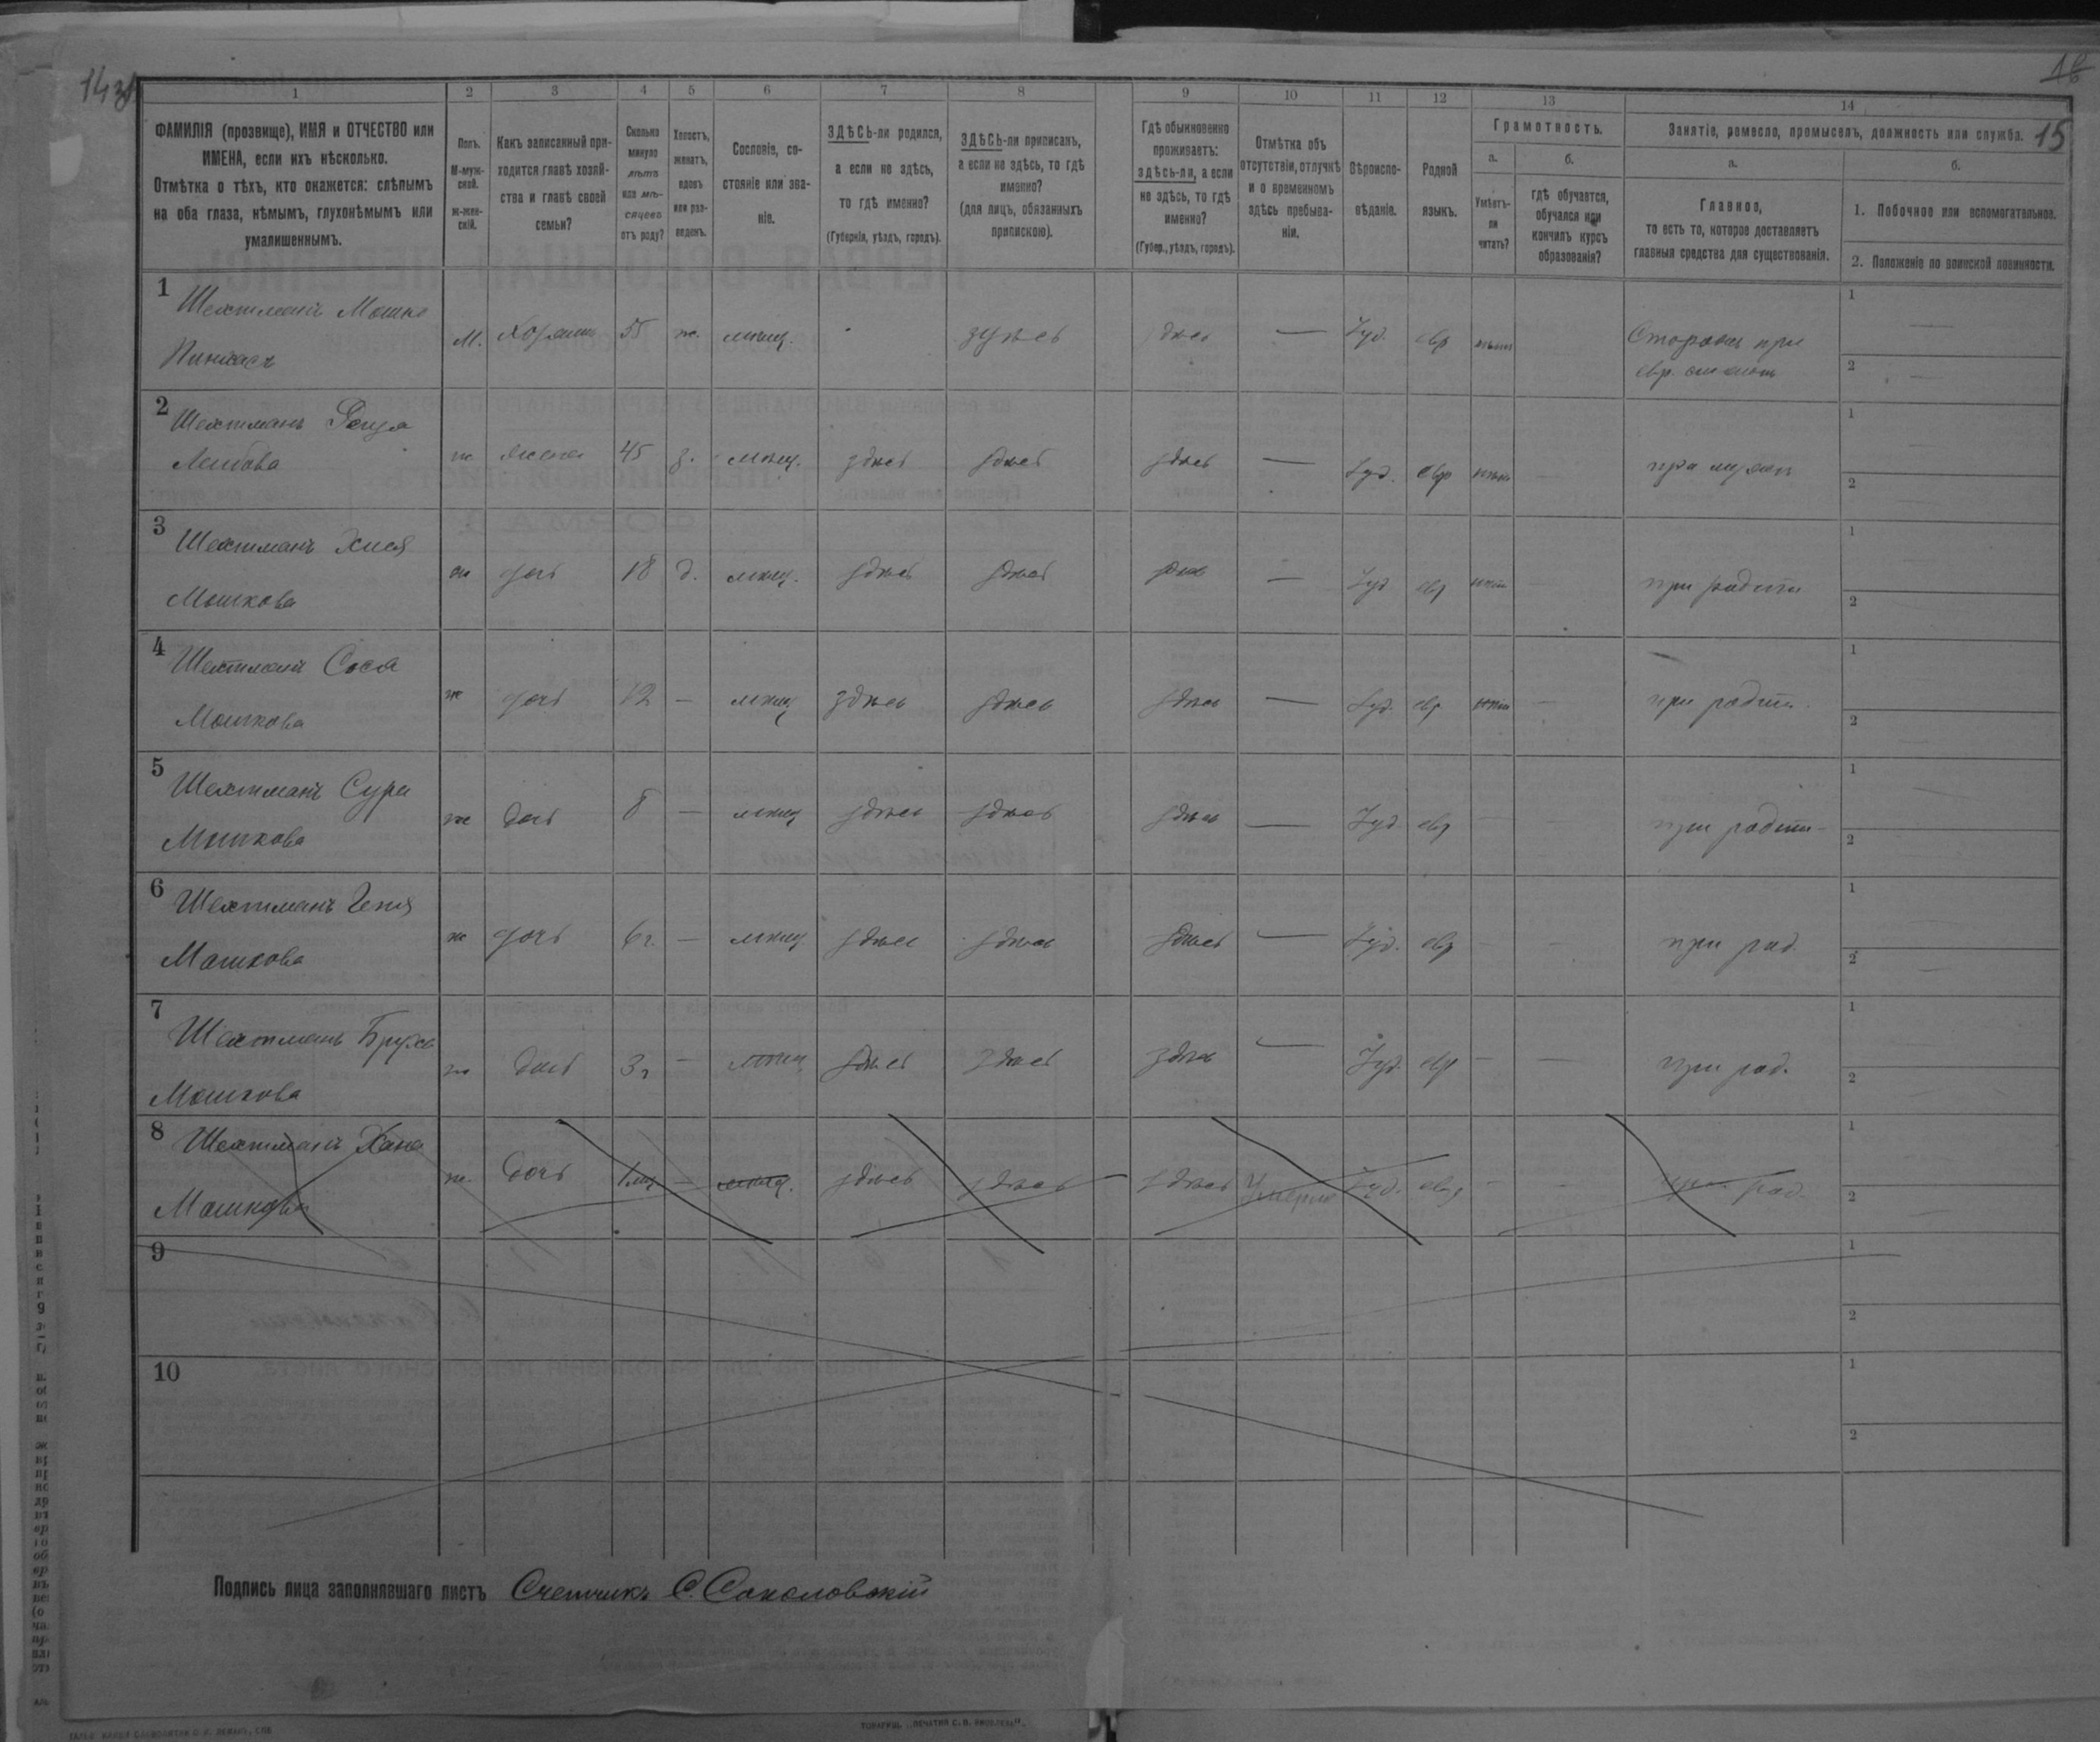 143
16
15
1 2 3 4 5 6 7 8 9 10 11 12 13 14
ФАМИЛІЯ (прозвище), ИМЯ и ОТЧЕСТВО или ИМЕНА, если ихъ нѣсколько.
Отмѣтка о тѣхъ, кто окажется: слѣпымъ на оба глаза, нѣмымъ, глухонѣмымъ или умалишеннымъ.
Полъ. М-мужской. ж-женскій.
Какъ записанный приходится главѣ хозяйства и главѣ своей семьи?
Сколько минуло лѣтъ или мѣсяцевъ отъ роду?
Холостъ, женатъ, вдовъ или разведенъ.
Сословіе, состояніе или званіе.
ЗДѢСЬ-ли родился, а если не здѣсь, то гдѣ именно? (Губернія, уѣздъ, городъ).
ЗДѢСЬ-ли приписанъ, а если не здѣсь, то гдѣ именно? (для лицъ, обязанныхъ припискою).
Гдѣ обыкновенно проживаетъ: здѣсь-ли, а если не здѣсь, то гдѣ именно? (Губер., уѣздъ, городъ).
Отмѣтка объ отсутствіи, отлучкѣ и о временномъ здѣсь пребываніи.
Вѣроисповѣданіе.
Родной языкъ.
Грамотность.
а. Умѣетъ-ли читать?
б. гдѣ обучается, обучался или кончилъ курсъ образованія?
Занятіе, ремесло, промыселъ, должность или служба.
а. Главное, то есть то, которое доставляетъ главныя средства для существованія.
б.
1. Побочное или вспомогательное.
2. Положеніе по воинской повинности.
1 Шехтманъ Мошко
Пинхасъ М. Хозяинъ 55 ж. мѣщ. здѣсь здѣсь — Іуд. евр Сторожъ при 1 — 2 —
2 Шехтманъ
Лейбова ж жена 45 з. мѣщ. здѣсь здѣсь здѣсь — Іуд. евр при мужѣ 1 — 2 —
3 Шехтманъ Хися
Мошкова ж дочь 18 д. мѣщ. здѣсь здѣсь здѣсь — Іуд евр нѣтъ — при родит 1 — 2 —
4 Шехтманъ Сося
Мошкова ж дочь 12 — мѣщ здѣсь здѣсь здѣсь — Іуд. евр нѣтъ — при родит. 1 — 2 —
5 Шехтманъ Сура
Мошкова ж дочь 8 — мѣщ здѣсь здѣсь здѣсь — Іуд. евр — — при родит 1 — 2 —
6 Шехтманъ
Мошкова ж дочь 6 г. — мѣщ здѣсь здѣсь здѣсь — Іуд. евр — — при род. 1 — 2 —
7 Шехтманъ Бруха
Мошкова ж дочь 3 г — мѣщ здѣсь здѣсь здѣсь — Іуд. евр — — при род. 1 2
8 Шехтманъ Хана
Мошкова ж. дочь 1 мц — мѣщ. здѣсь здѣсь здѣсь Умерла Іуд. евр — — при род. 1 2
9 1 2
10 1 2
Подпись лица заполнявшаго листъ Счетчикъ С. Соколовскій